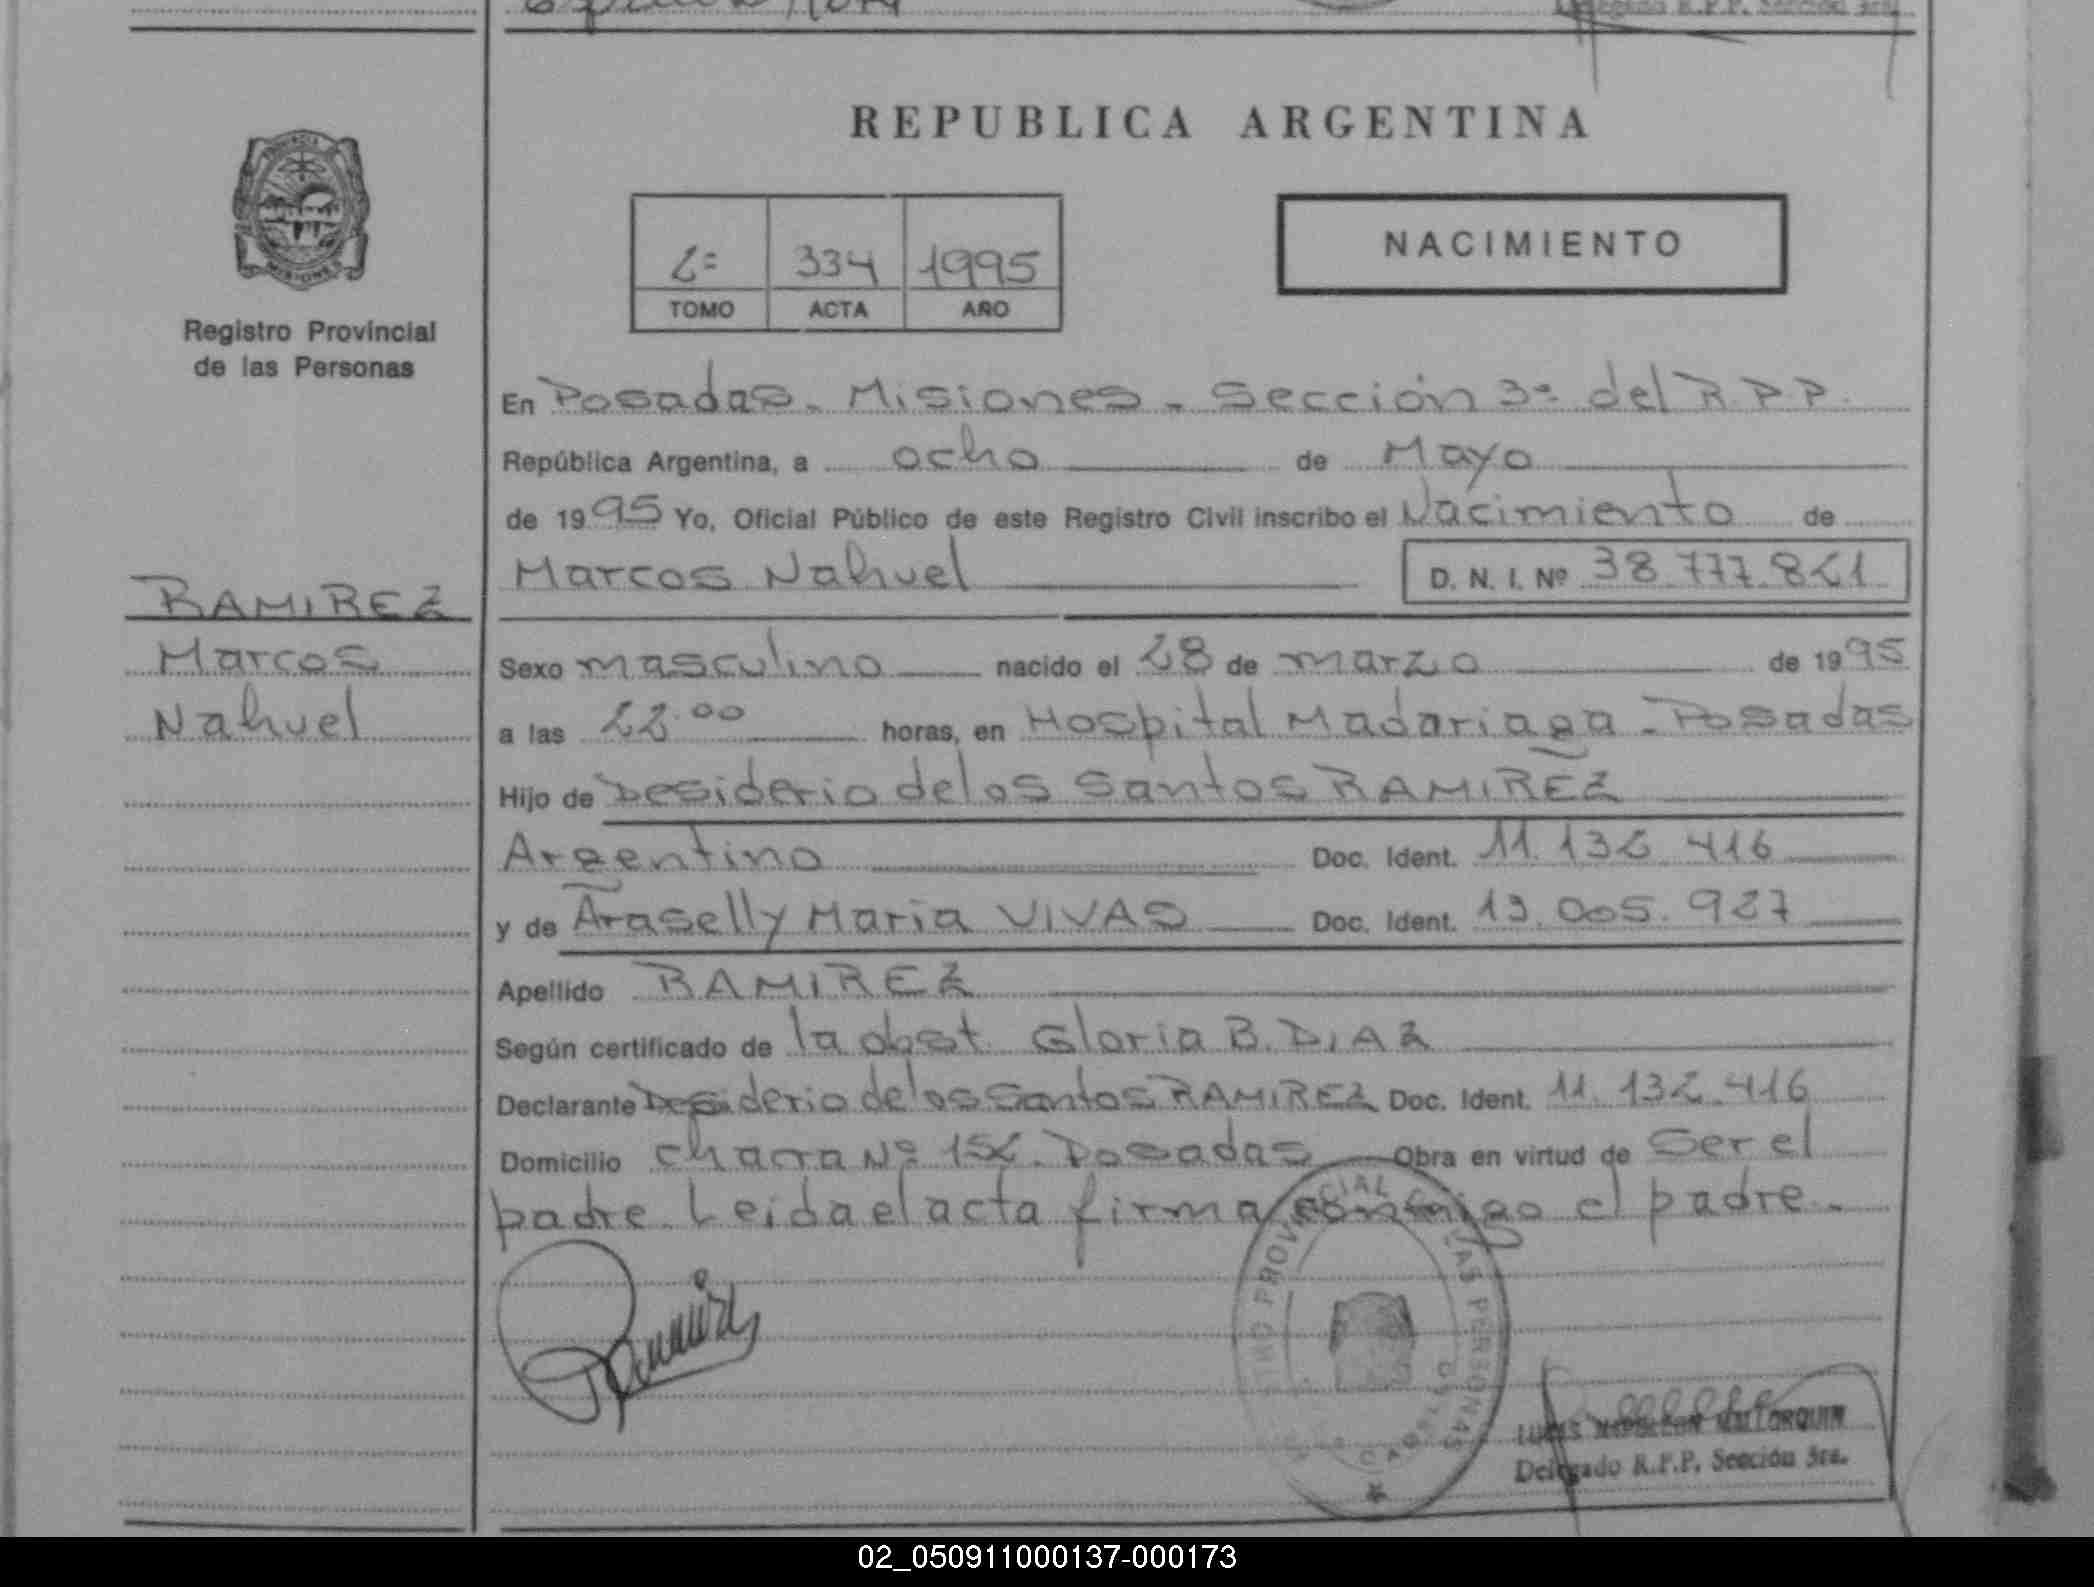 Delegado R.P.P. Sección 3ra.
REPUBLICA ARGENTINA
PROVINCIA
MISIONES
Registro Provincial
de las Personas
2º 334 1995
TOMO ACTA AÑO
NACIMIENTO
En Posadas - Misiones - Sección 3ª del R.P.P.
República Argentina, a ocho de Mayo
de 1995 Yo, Oficial Público de este Registro Civil inscribo el Nacimiento de
Marcos Nahuel D. N. I. Nº 38.777.821
RAMIREZ
Marcos
Nahuel
Sexo masculino nacido el 28 de marzo de 1995
a las 22.00 horas, en Hospital Madariaga - Posadas
Hijo de Desiderio de los Santos RAMIREZ
Argentino Doc. Ident. 11.132.416
y de Araselly Maria VIVAS Doc. Ident. 13.005.927
Apellido RAMIREZ
Según certificado de la obst. Gloria B. DIAZ
Declarante Desiderio de los Santos RAMIREZ Doc. Ident. 11.132.416
Domicilio chacra Nº 152. Posadas Obra en virtud de Ser el
padre. Leida el acta firma conmigo el padre.
PROVINCIAL LAS PERSONAS
MALLORQUIN
Delegado R.P.P. Sección 3ra.
02_050911000137-000173